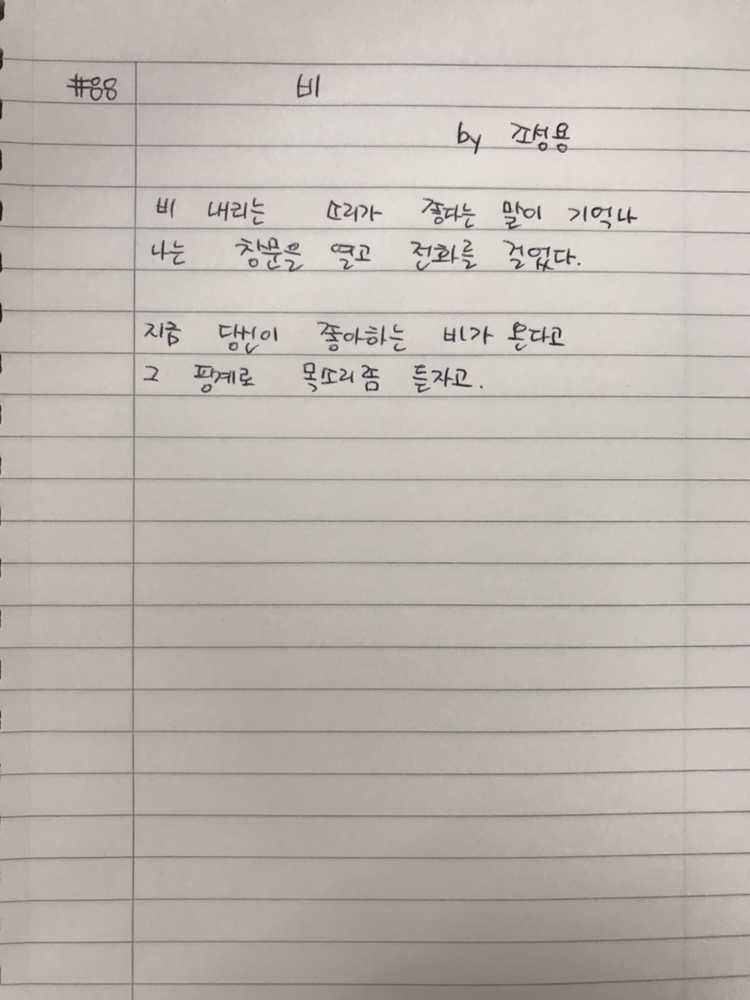 #88 비
by 조성용
비 내리는 소리가 좋다는 말이 기억나
나는 창문을 열고 전화를 걸었다.
지금 당신이 좋아하는 비가 온다고
그 핑계로 목소리 좀 듣자고.